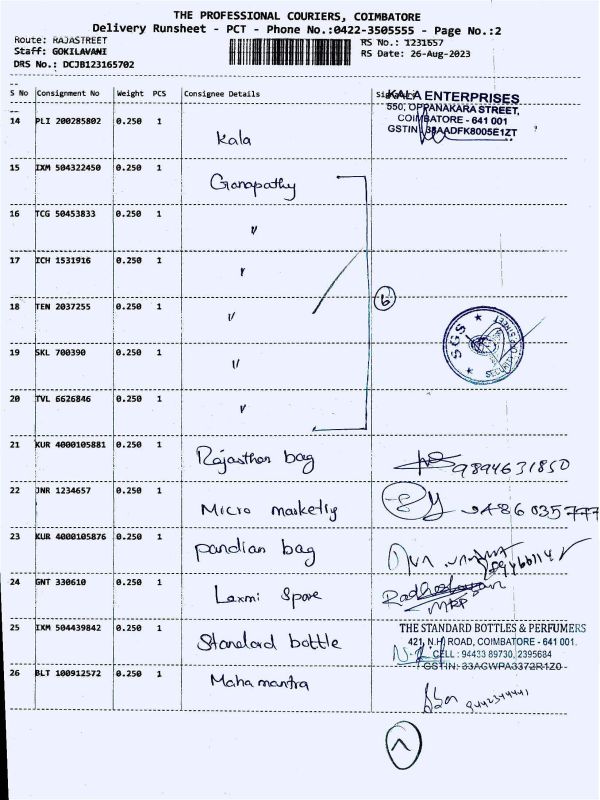 THE PROFESSIONAL COURIERS, COIMBATORE
Delivery Runsheet - PCT - Phone No.:0422-3505555 - Page No.:2
Route: RAJASTREET
RS No.: 1231657
Staff: GOKILAVANI
RS Date: 26-Aug-2023
DRS No.: DCJB123165702
S No Consignment No Weight PCS Consignee Details
KALA ENTERPRISES
550, OPPANAKARA STREET,
COIMBATORE - 641 001
GSTIN: 33AADFK8005E1ZT
14 PLI 200285802 0.250 1 Kala
15 IXM 504322450 0.250 1 Ganapathy
16 TCG 50453833 0.250 1 "
17 ICH 1531916 0.250 1 "
18 TEN 2037255 0.250 1 "
6
19 SKL 700390 0.250 1 "
SGS
SECURITY
STREET
20 TVL 6626846 0.250 1 "
21 KUR 4000105881 0.250 1 Rajasthan bag 9894631850
22 JNR 1234657 0.250 1 Micro marketig
23 KUR 4000105876 0.250 1 pandian bag
24 GNT 330610 0.250 1 Laxmi Spare
25 IXM 504439842 0.250 1 Standard bottle
THE STANDARD BOTTLES & PERFUMERS
421, N.H. ROAD, COIMBATORE - 641 001.
CELL : 94433 89730, 2395684
GSTIN: 33AGWPA3372R1Z0
26 BLT 100912572 0.250 1 Maha mantra